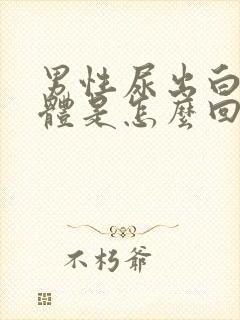 男性尿出白
體是怎麼回
不朽爺